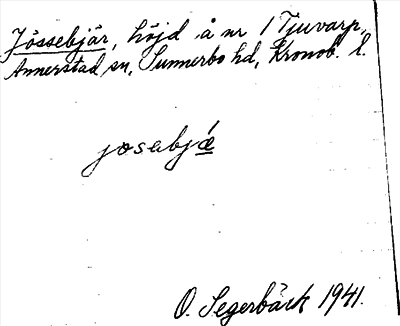 Jössebjär, höjd å nr 1 Tjuvarp,
Annerstad sn, Sunnerbo hd, Kronob. l.
josabjǽ
O. Segerbäck 1941.